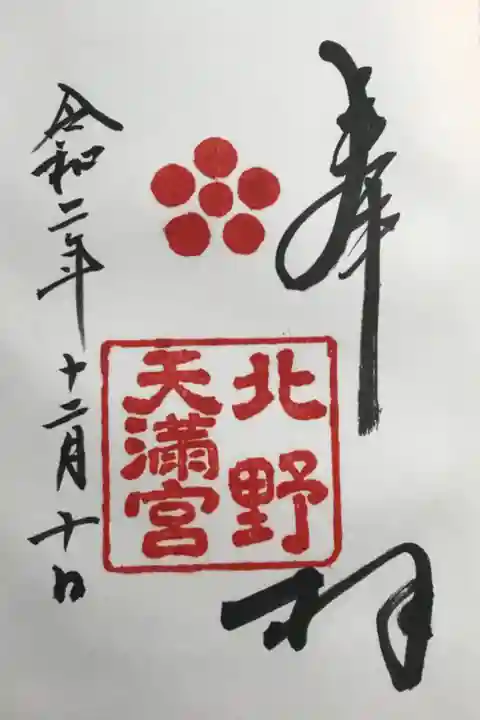 奉拝
北野
天満宮
令和二年十二月十日